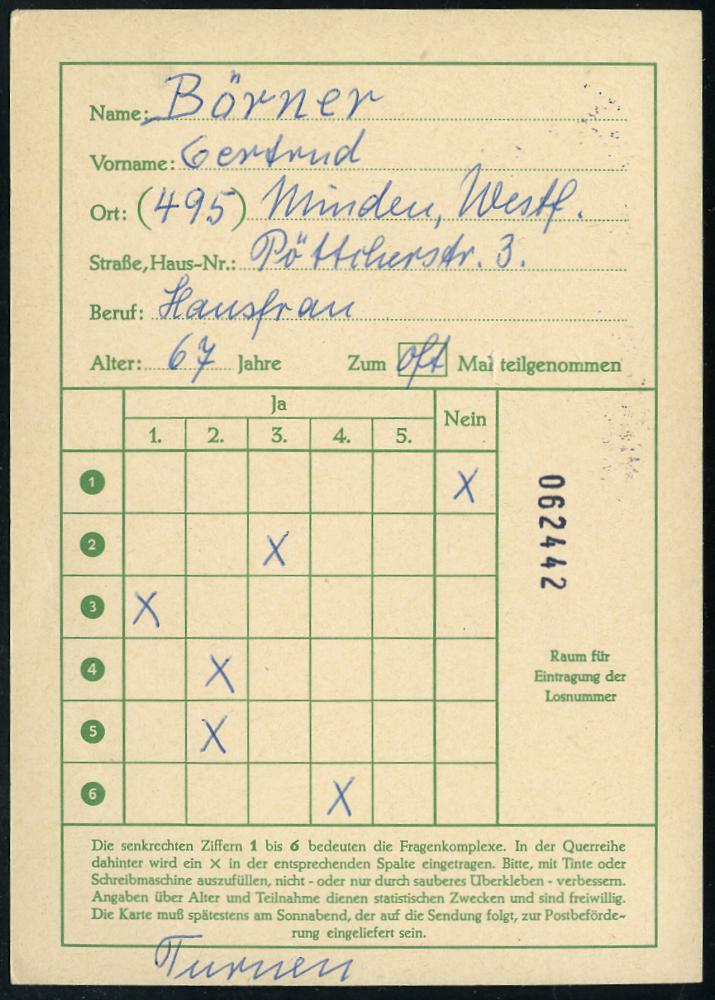 Name: Börner
Vorname: Gertrud
Ort: (495) Minden, Westf.
Straße, Haus-Nr.: Pöttcherstr. 3.
Beruf: Hausfrau
Alter: 67 Jahre Zum oft Mal teilgenommen
Ja Nein
1. 2. 3. 4. 5.
1 X
2 X
3 X
4 X
5 X
6 X
062442
Raum für
Eintragung der
Losnummer
Die senkrechten Ziffern 1 bis 6 bedeuten die Fragenkomplexe. In der Querreihe
dahinter wird ein × in der entsprechenden Spalte eingetragen. Bitte, mit Tinte oder
Schreibmaschine auszufüllen, nicht - oder nur durch sauberes Überkleben - verbessern.
Angaben über Alter und Teilnahme dienen statistischen Zwecken und sind freiwillig.
Die Karte muß spätestens am Sonnabend, der auf die Sendung folgt, zur Postbeförde-
rung eingeliefert sein.
Turnen